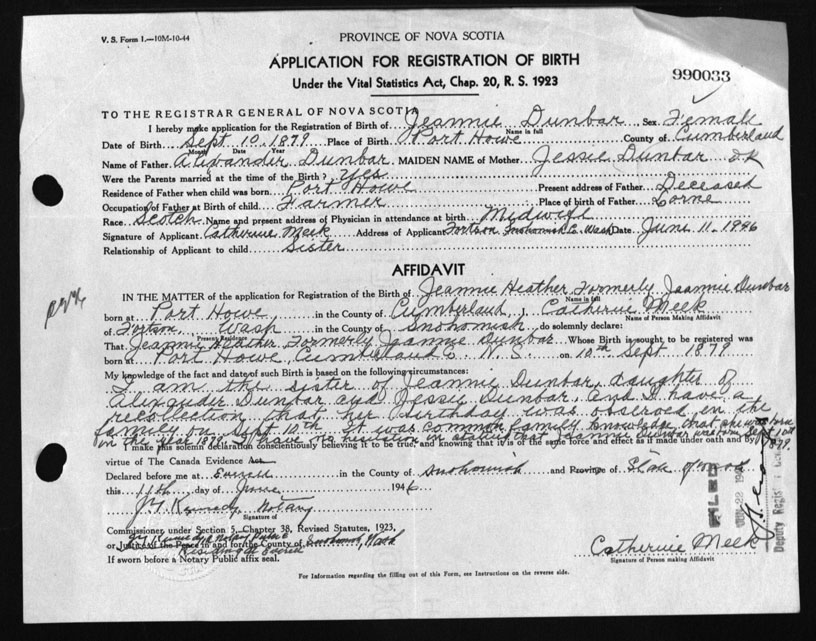 V. S. Form 1.—10M-10-44
PROVINCE OF NOVA SCOTIA
APPLICATION FOR REGISTRATION OF BIRTH
Under the Vital Statistics Act, Chap. 20, R. S. 1923
990033
TO THE REGISTRAR GENERAL OF NOVA SCOTIA
I hereby make application for the Registration of Birth of Jeannie Dunbar Sex Female
Name in full
Date of Birth Sept 10 1879 Place of Birth Port Howe County of Cumberland
Month Date Year
Name of Father Alexander Dunbar MAIDEN NAME of Mother Jessie Dunbar
Were the Parents married at the time of the Birth? Yes
Residence of Father when child was born Port Howe Present address of Father Deceased
Occupation of Father at Birth of child Farmer Place of birth of Father Lorne
Race Scotch Name and present address of Physician in attendance at birth Midwife
Signature of Applicant Catherine Meek Address of Applicant Fortson Snohomish Co Wash Date June 11, 1946
Relationship of Applicant to child Sister
AFFIDAVIT
IN THE MATTER of the application for Registration of the Birth of Jeannie Heather Formerly Jeannie Dunbar
Name in full
born at Port Howe in the County of Cumberland, I, Catherine Meek
Name of Person Making Affidavit
of Fortson Wash in the County of Snohomish do solemnly declare:
Present Residence
That Jeannie Heather Formerly Jeannie Dunbar Whose Birth is sought to be registered was
born at Port Howe, Cumberland Co. N. S. on 10th Sept 1879
My knowledge of the fact and date of such Birth is based on the following circumstances:
I am the sister of Jeannie Dunbar, daughter of
Alexander Dunbar and Jessie Dunbar, and I have a
recollection that her birthday was observed in the
family on Sept 10th. It was common family knowledge that she was born
in the year 1879. I have no hesitation in stating that Jeannie Dunbar was born Sept 10th 1879.
I make this solemn declaration conscientiously believing it to be true, and knowing that it is of the same force and effect as if made under oath and by
virtue of The Canada Evidence Act.
Declared before me at Everett in the County of Snohomish and Province of State of Wash
this 11th day of June 1946
J Y Kennedy Notary
Signature of
Commissioner under Section 5, Chapter 38, Revised Statutes, 1923,
J Y Kennedy a Notary Public
or Justice of the Peace in and for the County of Snohomish, Wash
Residing at Everett
If sworn before a Notary Public affix seal.
Catherine Meek
Signature of Person making Affidavit
FILED
Deputy Registrar
For Information regarding the filling out of this Form, see Instructions on the reverse side.